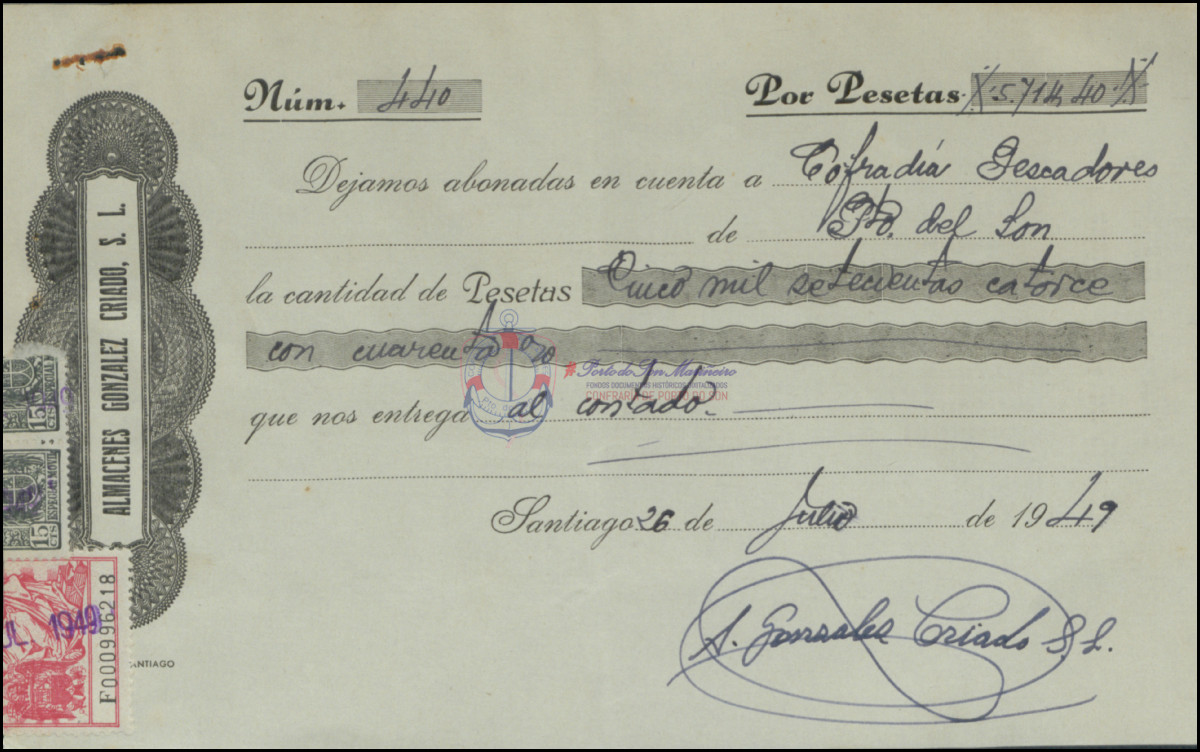 Núm. 440
Por Pesetas 5.714,40
Dejamos abonadas en cuenta a Cofradía Pescadores
de Pto. del Son
la cantidad de Pesetas Cinco mil setecientas catorce
con cuarenta %
#PortodoSon Mariñeiro
FONDOS DOCUMENTAIS HISTÓRICOS DIXITALIZADOS
CONFRARÍA DE PORTO DO SON
que nos entrega al contado.
Santiago 26 de Julio de 1949
A. Gonzalez Criado S. L.
ALMACENES GONZALEZ CRIADO, S. L.
15 CTS
ESPECIAL
15 CTS
ESPECIAL MOVIL
JUL. 1949
F000996218
SANTIAGO